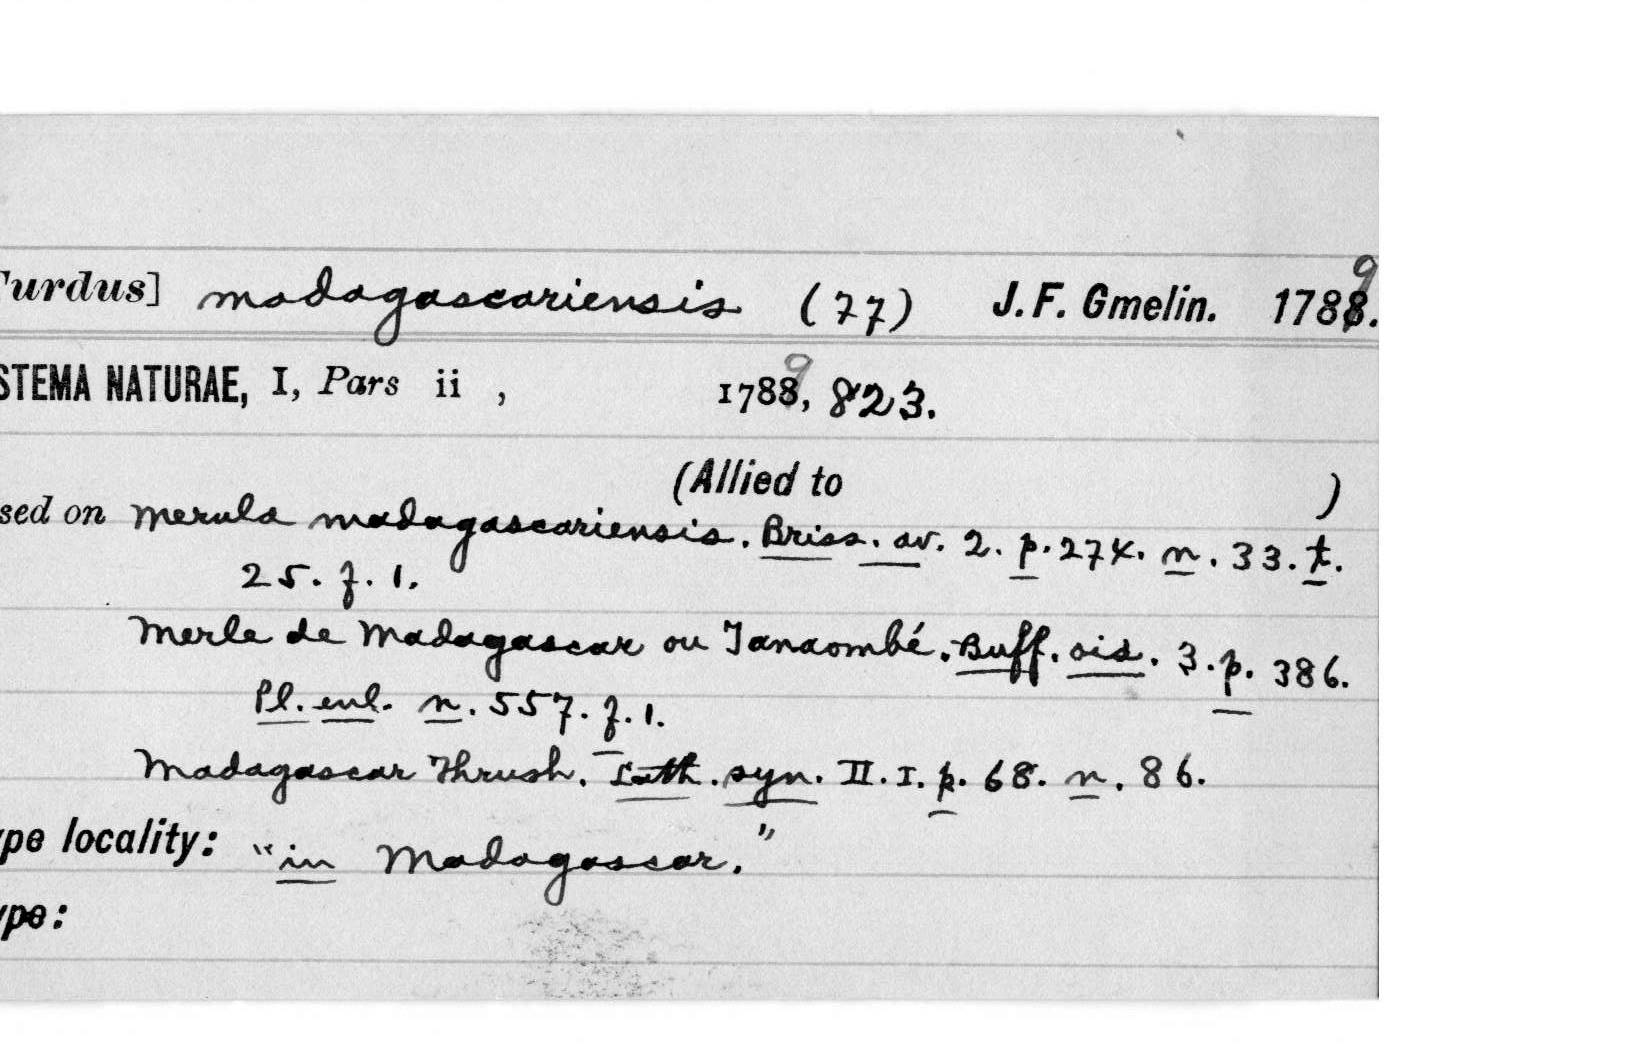 Turdus] madagascariensis (77) J. F. Gmelin. 1789.
STEMA NATURAE, I, Pars ii , 1789, 823.
(Allied to )
sed on Merula madagascariensis. Briss. av. 2. p. 274. n. 33. t.
25. f. 1.
Merle de Madagascar ou Tanaombé. Buff. ois. 3. p. 386.
Pl. enl. n. 557. f. 1.
Madagascar Thrush. Lath. syn. II. I. p. 68. n. 86.
ype locality: "in Madagascar."
ype: